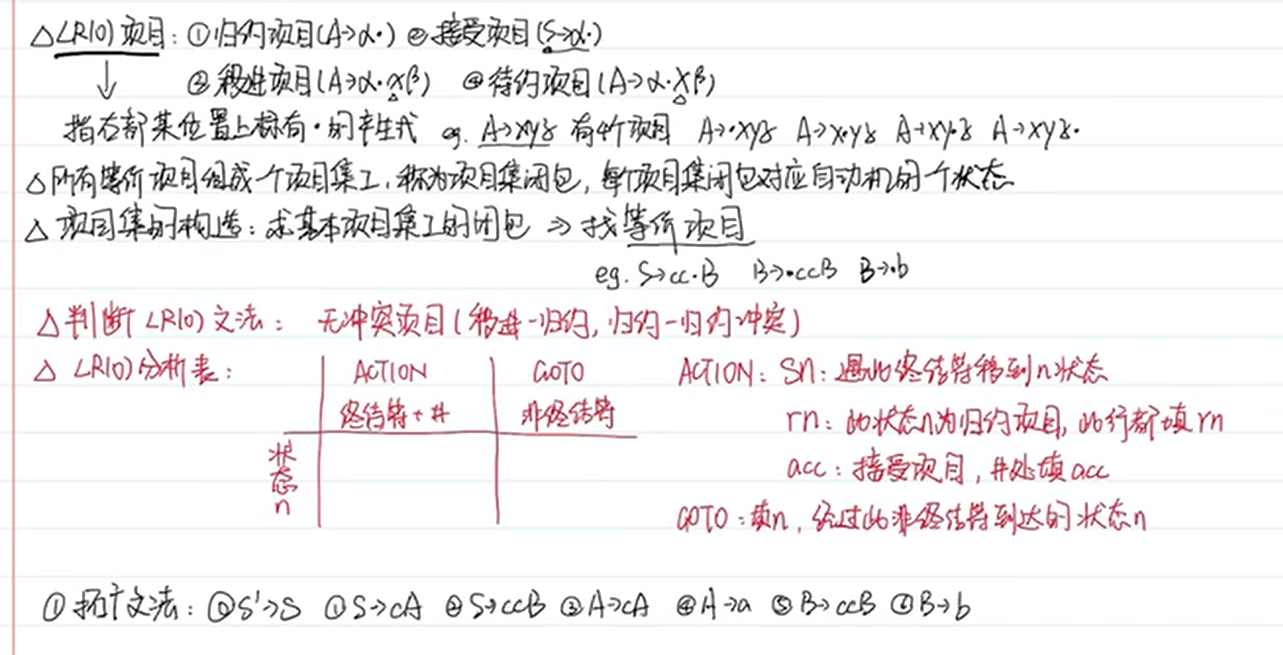 △LR(0)项目：①归约项目(A→α·) ②接受项目(S→α·)
③移进项目(A→α·xβ) ④待约项目(A→α·Xβ)
↓
指右部某位置上标有·的产生式 eg. A→xyz 有4个项目 A→·xyz A→x·yz A→xy·z A→xyz·
△所有等价项目组成一个项目集I，称为项目集闭包，每个项目集闭包对应自动机的一个状态
△项目集的构造：求基本项目集I的闭包 ⇒ 找等价项目
eg. S→cc·B B→·ccB B→·b
△判断LR(0)文法： 无冲突项目(移进-归约，归约-归约冲突)
△ LR(0)分析表：
ACTION GOTO
终结符+# 非终结符
状态n
ACTION：Sn：遇此终结符移到n状态
rn：此状态n为归约项目，此行都填rn
acc：接受项目，#处填acc
GOTO：填n，经过此非终结符到达的状态n
①拓广文法：⓪S'→S ①S→cA ②S→ccB ③A→cA ④A→a ⑤B→ccB ⑥B→b